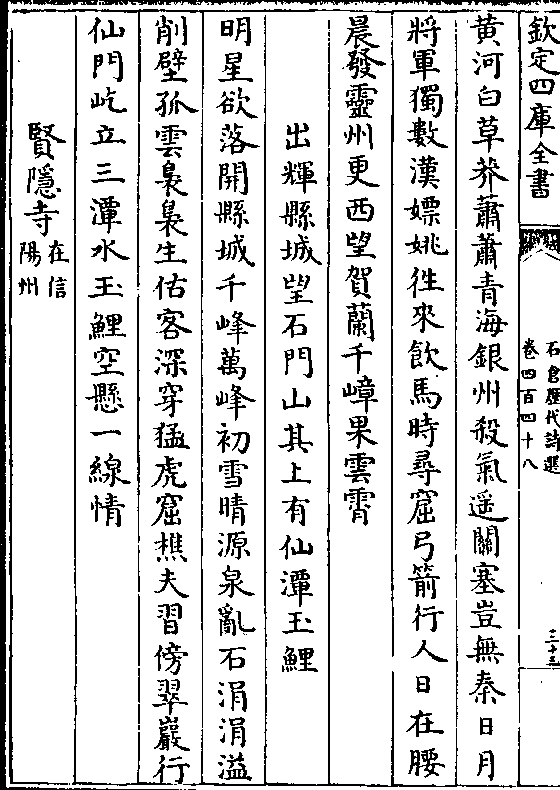 欽定四庫全書
石倉歷代詩選
卷四百四十八
三十三
黃河白草莽蕭蕭青海銀州殺氣遥關塞豈無秦日月
將軍獨數漢嫖姚徃來飲馬時尋窟弓箭行人日在腰
晨發靈州更西望賀蘭千嶂果雲霄
出輝縣城望石門山其上有仙潭玉鯉
明星欲落開縣城千峰萬峰初雪晴源泉亂石涓涓溢
削壁孤雲裊裊生估客深穿猛虎窟樵夫習傍翠巖行
仙門屹立三潭水玉鯉空懸一線情
賢隱寺在信陽州